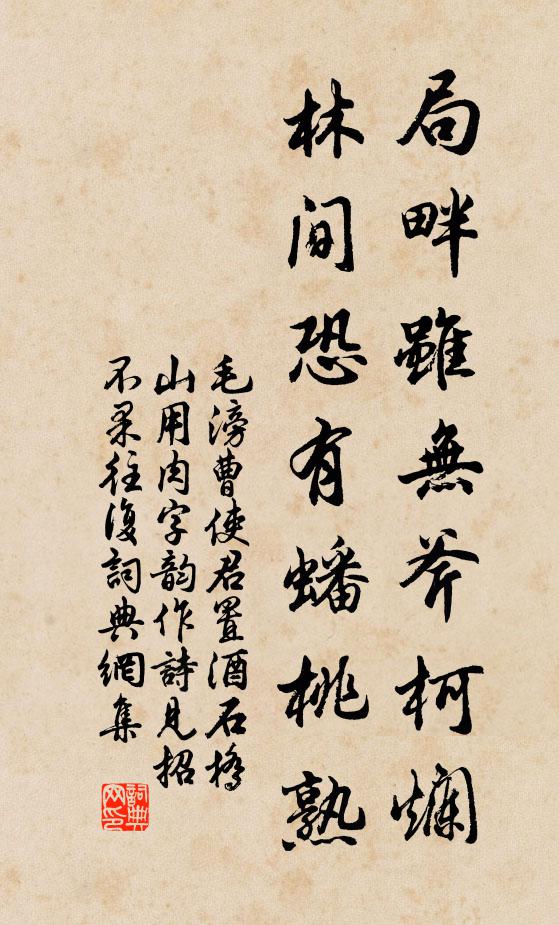 局畔雖無斧柯爛
林間恐有蟠桃熟
毛滂曹使君置酒石橋
山用肉字韵作詩見招
不果往復詞典網集
詞典網印